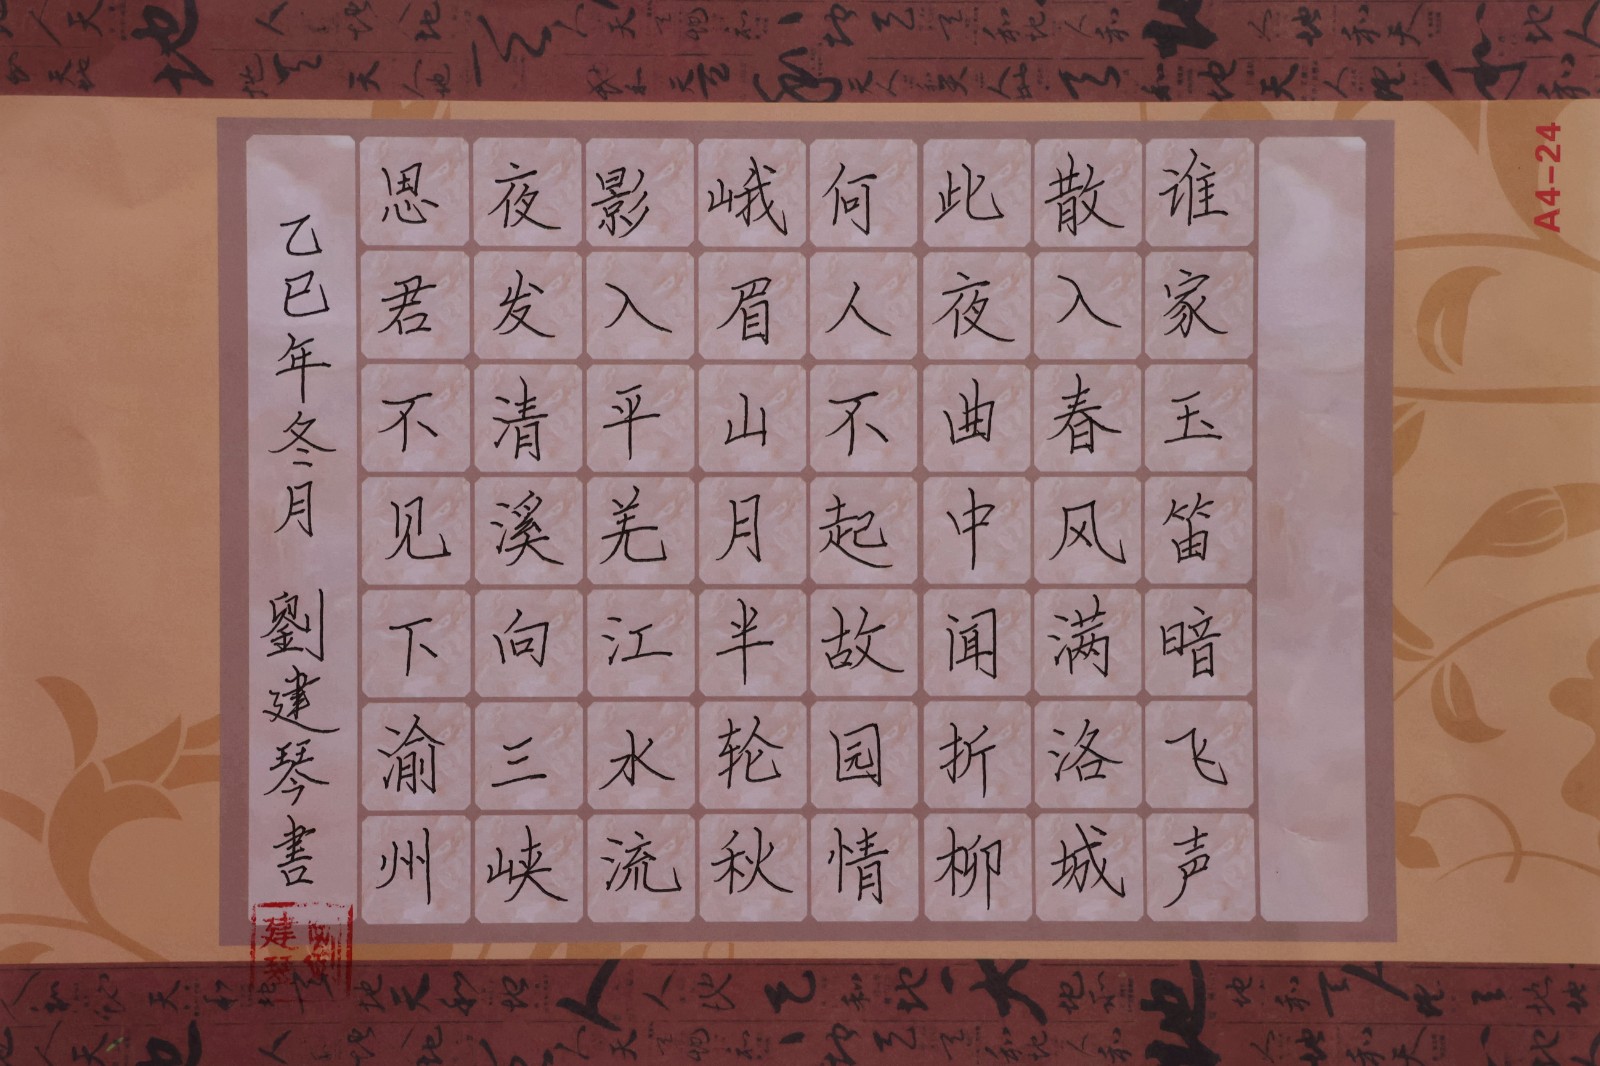 谁家玉笛暗飞声
散入春风满洛城
此夜曲中闻折柳
何人不起故园情
峨眉山月半轮秋
影入平羌江水流
夜发清溪向三峡
思君不见下渝州
乙巳年冬月 劉建琴書
A4-24